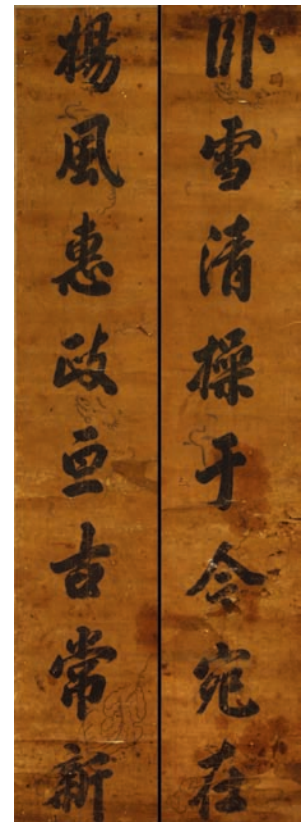 卧雪清操于今宛在
揚風惠政亘古常新